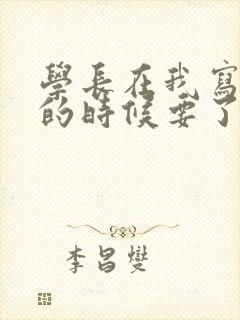 學長在我寫
的時候要了
李昌燮